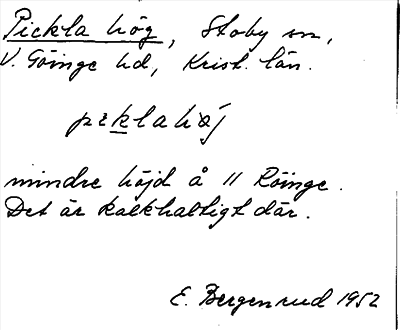 Pickla hög, Stoby sn,
V. Göinge hd, Krist. län.
pɪklahøj
mindre höjd å 11 Röinge.
Det är kalkhaltigt där.
E. Bergenrud 1952